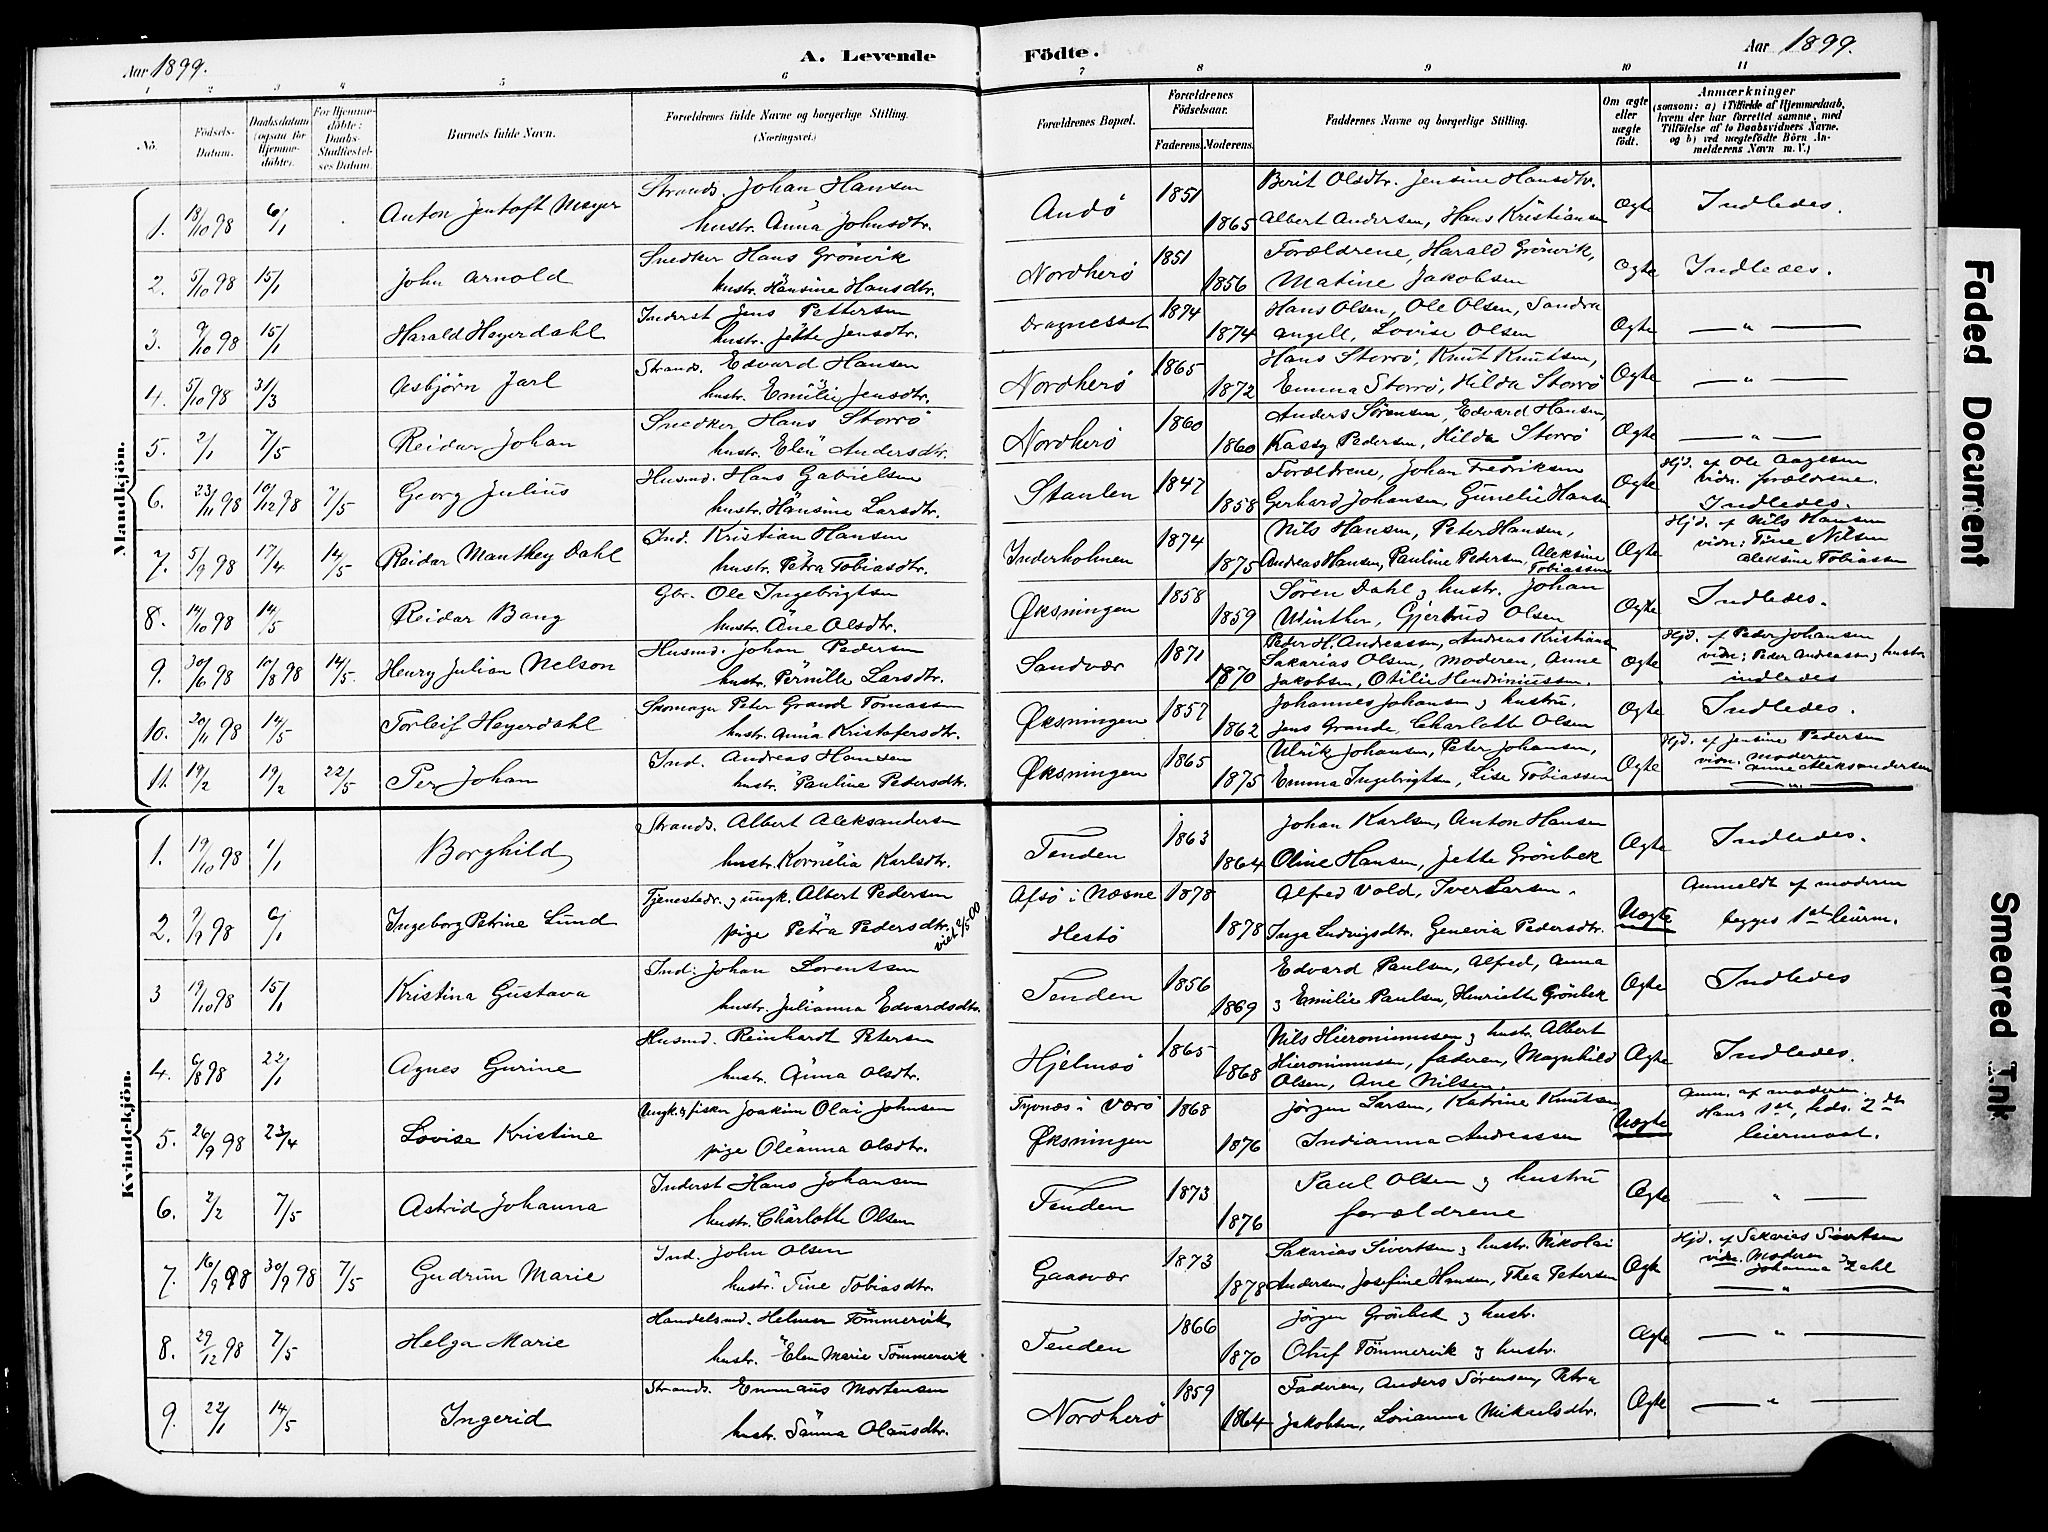 Aar 1899.
A. Levende Födte.
Aar 1899.
1 2 3 4 5 6 7 8 9 10 11
No.
Födsels-Datum.
Daabsdatum (ogsaa for Hjemmedöbte).
For Hjemmedöbte: Daabs-Stadfæstelses Datum.
Barnets fulde Navn.
Forældrenes fulde Navne og borgerlige Stilling.
(Næringsvei.)
Forældrenes Bopæl.
Forældrenes Födselsaar.
Faderens. Moderens.
Faddernes Navne og borgerlige Stilling.
Om ægte eller uægte födt.
Anmærkninger
(saasom: a) i Tilfælde af Hjemmedaab,
hvem der har forrettet samme, med
Tilföielse af to Daabsvidners Navne,
og b) ved uægtefödte Börn An-
melderens Navn m. V.)
Mandkjön.
1. 18/10 98 6/1 Anton Jentoft Meyer Strands. Johan Hansen
hustr. Anna Johnsdtr. Andö 1851 1865 Berit Olsdtr. Jensine Hansdtr.
Albert Andersen, Hans Kristiansen Ægte Indledes.
2. 5/10 98 15/1 John Arnold Snedker Hans Grönvik
hustr. Hansine Hansdtr. Nordherö 1851 1856 Forældrene, Harald Grönvik,
Matine Jakobsen Ægte Indledes.
3. 9/10 98 15/1 Harald Heyerdahl Inderst Jens Pettersen
hustr. Jette Jensdtr. Dragnesset 1874 1874 Hans Olsen, Ole Olsen, Sandra
Angell, Lovise Olsen Ægte — " —
4. 5/10 98 31/3 Asbjörn Jarl Strands. Edvard Hansen
hustr. Emilie Jensdtr. Nordherö 1865 1872 Hans Storrö, Knut Knutsen,
Emma Storrö, Hilda Storrö Ægte — " —
5. 2/1 7/5 Reidar Johan Snedker Hans Storrö
hustr. Elen Andersdtr. Nordherö 1860 1860 Anders Sörensen, Edvard Hansen,
Kassy Pedersen, Hilda Storrö Ægte — " —
6. 23/11 98 10/12 98 7/5 Georg Julius Husmd. Hans Gabrielsen
hustr. Hansine Larsdtr. Staulen 1847 1858 Forældrene, Johan Fredriksen
Gerhard Johansen, Gunelie Hansen Ægte Hjd. af Ole Aagesen
vidn. forældrene.
Indledes.
7. 5/9 98 17/4 14/5 Reidar Manthey Dahl Ind. Kristian Hansen
hustr. Petra Tobiasdtr. Inderholmen 1874 1875 Nils Hansen, Peter Hansen,
Andreas Hansen, Pauline Pedersen, Aleksine Tobiassen Ægte Hjd. af Nils Hansen
vidn: Tine Nilsen
Aleksine Tobiassen
8. 14/10 98 14/5 Reidar Bang Gbr. Ole Ingebrigtsen
hustr. Ane Olsdtr. Øksningen 1858 1859 Sören Dahl og hustr. Johan
Winther, Gjertrud Olsen Ægte Indledes.
9. 30/6 98 10/8 98 14/5. Henry Julian Nelson Husmd. Johan Pedersen
hustr. Pernille Larsdtr. Sandvær 1871 1870 Peder H. Andreassen, Andreas Kristians
Sakarias Olsen, Moderen, Anne
Jakobsen, Otilie Hendriniussen. Ægte Hjd. af Peder Johansen
vidn: Peder Andreassen og hustr
indledes
10. 20/11 98 14/5 Torleif Heyerdahl Skomager Peter Grande Tomassen
hustr. Anna Kristofersdtr. Øksningen 1857 1862 Johannes Johansen og hustru,
Jens Grande, Charlotte Olsen Ægte Indledes.
11. 19/2 19/2 22/5 Per Johan Ind. Andreas Hansen
hustr. Pauline Pedersdtr. Øksningen 1865 1875 Ulrik Johansen, Peter Johansen,
Emma Ingebrigtsen, Lise Tobiassen Ægte Hjd. af Jensine Pedersen
vidn. Moderen
Anne Aleksandersen
— " —
Kvindekjön.
1. 19/10 98 1/1 Borghild Strands. Albert Aleksandersen
hustr. Kornelia Karlsdtr. Tenden 1863 1864 Johan Karlsen, Anton Hansen
Oline Hansen, Jette Grönbek Ægte Indledes.
2. 9/9 98 6/1 Ingeborg Petrine Lund Tjenestedr. og ungk. Albert Pedersen
pige Petra Pedersdtr. viet 2/5 00 Afsö i Næsne
Hestö 1878 1878 Alfred Vold, Iver Larsen,
Inga Ludvigsdtr. Genevia Pedersdtr. Uægte Anmeldt af moderen
begges 1ste leierm.
3 19/10 98 15/1 Kristina Gustava Ind. Johan Lorentsen
hustr. Julianna Edvardsdtr. Tenden 1856 1869 Edvard Paulsen, Alfred, Anna
og Emilie Paulsen, Henriette Grönbek Ægte Indledes
4. 6/8 98 22/1 Agnes Gurine Husmd. Reinhardt Petersen
hustr. Anna Olsdtr. Hjelmsö 1865 1868 Nils Hieronimusen og hustr. Albert
Hieronimusen, faderen, Magnhild
Olsen, Ane Nilsen. Ægte Indledes.
5. 26/9 98 23/4 Lovise Kristine Ungk. & fisker Joakim Olai Johnsen
pige Oleanna Olsdtr. Tyvnæs i Værö
Øksningen 1868 1876 Jörgen Larsen, Katrine Knutsen
Indianna Andreassen Uægte Anm. af moderen.
Hans 1ste, hds. 2det
leiermaal.
6. 2/2 7/5 Astrid Johanna Inderst Hans Johansen
hustr. Charlotte Olsen Tenden 1873 1876 Paul Olsen og hustru
forældrene Ægte — " —
7. 16/9 98 30/9 98 7/5 Gudrun Marie Ind. John Olsen
hustr. Tine Tobiasdtr. Gaasvær 1873 1878 Sakarias Sivertsen og hustr. Nikolai
Andersen, Josefine Hansen, Thea Petersen Ægte Hjd. af Sakarias Sivertsen
vidn. Moderen
Johanna Zahl
— " —
8. 29/12 98 7/5 Helga Marie Handelsmd. Helmer Tömmervik
hustr. Elen Marie Tömmervik Tenden 1866 1870 Jörgen Grönbek og hustr.
Oluf Tömmervik og hustr. Ægte — " —
9. 22/1 14/5 Ingerid Strands. Emmaus Mortensen
hustr. Sanna Olausdtr. Nordherö 1859 1864 Faderen, Anders Sörensen, Petra
Jakobsen, Lorianna Mikaelsdtr. Ægte — " —
Faded Document
Smeared Ink